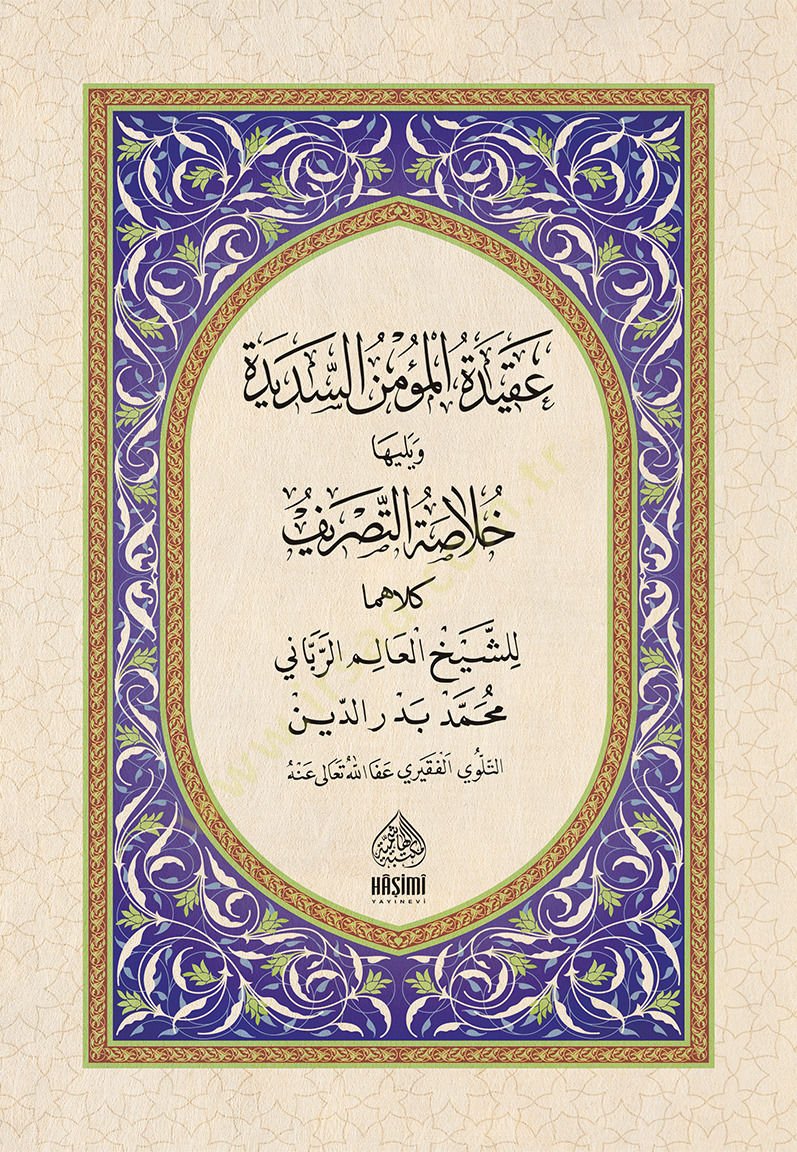 عَقِيدَةُ الْمُؤْمِنِ السَّدِيدَة
وَيَلِيهَا
خُلَاصَةُ التَّصْرِيفِ
كلاهما
لِلشَّيْخِ الْعَالِمِ الرَّبَّانِي
مُحَمَّدْ بَدْرِ الدّين
التِّلّوِي الْفَقِيرِي عَفَا اللهُ تَعَالَى عَنْهُ
المكتبة الهاشمية
HÂŞİMÎ
YAYINEVİ